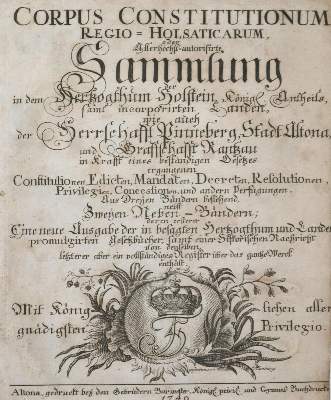 CORPUS CONSTITUTIONUM
REGIO-HOLSATICARUM,
oder
Allerhöchst-autorisirte
Sammlung
der
in dem Hertzogthum Holstein, Königl. Antheils,
samt incorporirten Landen,
wie auch
der Herrschafft Pinneberg, Stadt Altona,
und Graffschafft Rantzau
in Krafft eines beständigen Gesetzes
ergangenen
Constitutionen Edicten, Mandaten, Decreten, Resolutionen,
Privilegien, Concessionen, und andern Verfügungen.
Aus Dreyen Bänden bestehend,
nebst
Zweyen Neben-Bändern;
deren ersterer
Eine neue Ausgabe der in besagten Hertzogthum und Landen
promulgirten Gesetzbücher, samt einer Historischen Nachricht
von denselben,
letzterer aber ein vollständiges Register über das gantze Werck
enthält.
Mit König lichen aller
gnädigsten Privilegio.
Altona, gedruckt bey den Gebrüdern Burmester, Königl. privil. und Gymnas. Buchdrucker
1749